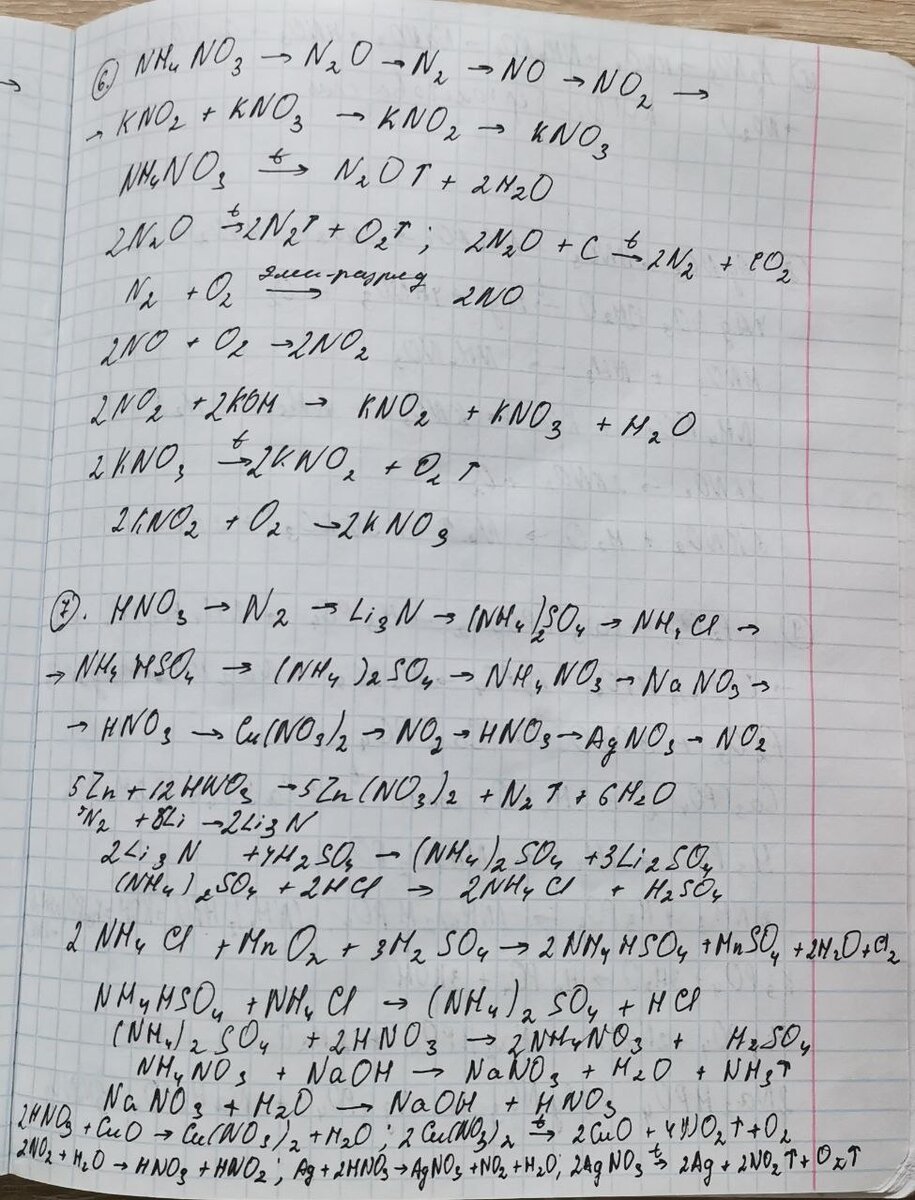 6. NH₄NO₃ → N₂O → N₂ → NO → NO₂ →
→ KNO₂ + KNO₃ → KNO₂ → KNO₃
NH₄NO₃ –t→ N₂O↑ + 2H₂O
2N₂O –t→ 2N₂↑ + O₂↑ ; 2N₂O + C –t→ 2N₂ + CO₂
N₂ + O₂ –элек-разряд→ 2NO
2NO + O₂ → 2NO₂
2NO₂ + 2KOH → KNO₂ + KNO₃ + H₂O
2KNO₃ –t→ 2KNO₂ + O₂↑
2KNO₂ + O₂ → 2KNO₃
7. HNO₃ → N₂ → Li₃N → (NH₄)₂SO₄ → NH₄Cl →
→ NH₄HSO₄ → (NH₄)₂SO₄ → NH₄NO₃ → NaNO₃ →
→ HNO₃ → Cu(NO₃)₂ → NO₂ → HNO₃ → AgNO₃ → NO₂
5Zn + 12HNO₃ → 5Zn(NO₃)₂ + N₂↑ + 6H₂O
N₂ + 6Li → 2Li₃N
2Li₃N + 4H₂SO₄ → (NH₄)₂SO₄ + 3Li₂SO₄
(NH₄)₂SO₄ + 2HCl → 2NH₄Cl + H₂SO₄
2NH₄Cl + MnO₂ + 3H₂SO₄ → 2NH₄HSO₄ + MnSO₄ + 2H₂O + Cl₂
NH₄HSO₄ + NH₄Cl → (NH₄)₂SO₄ + HCl
(NH₄)₂SO₄ + 2HNO₃ → 2NH₄NO₃ + H₂SO₄
NH₄NO₃ + NaOH → NaNO₃ + H₂O + NH₃↑
NaNO₃ + H₂O → NaOH + HNO₃
2HNO₃ + CuO → Cu(NO₃)₂ + H₂O ; 2Cu(NO₃)₂ –t→ 2CuO + 4NO₂↑ + O₂
2NO₂ + H₂O → HNO₃ + HNO₂ ; Ag + 2HNO₃ → AgNO₃ + NO₂ + H₂O ; 2AgNO₃ –t→ 2Ag + 2NO₂↑ + O₂↑